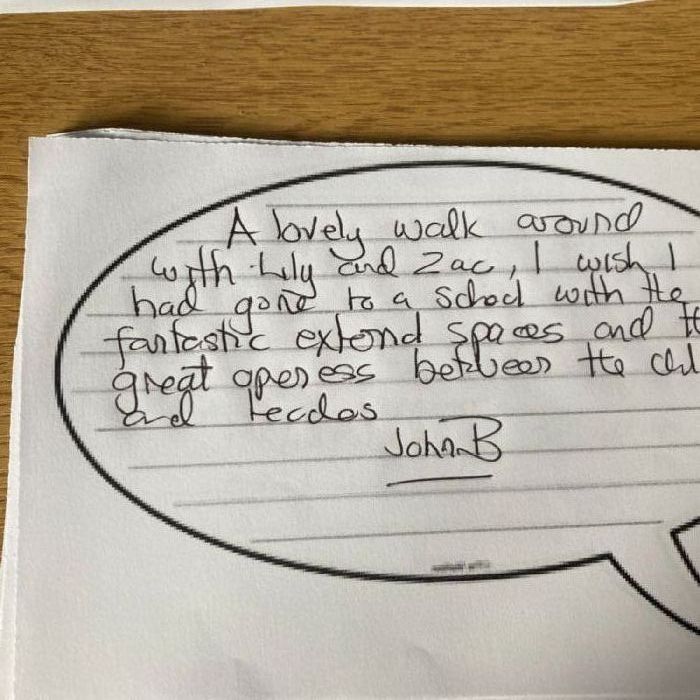 A lovely walk around
with Lily and Zac, I wish I
had gone to a school with the
fantastic extend spaces and
great openess between the
and
John B